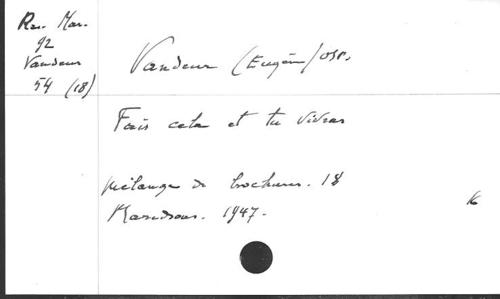 Re. Mar.
92
Vandeur
54 (18)
Vandeur (Eugène) OSB.
Fais cela et tu vivras
Mélange de brochures. 18
Maredsous. 1947.